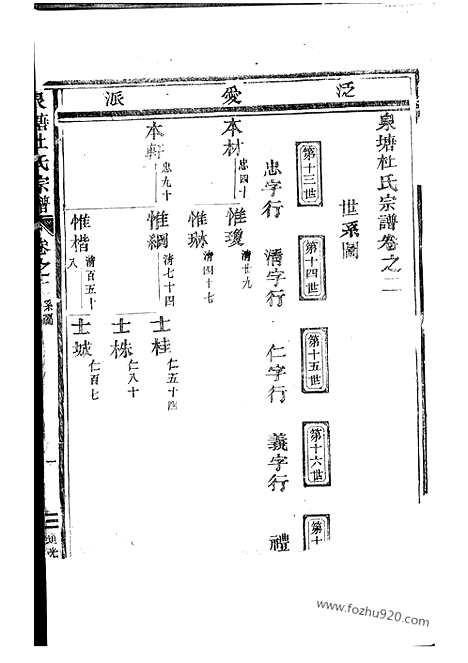 泉塘杜氏宗譜卷之二
世系圖
泛愛派
第十三世 第十四世 第十五世 第十六世 第十
忠字行 清字行 仁字行 義字行 禮
本材 忠四十 惟瓊 清廿九
惟琳 清四十七
本軒 忠九十 惟綱 清七十四 士桂 仁五十四
士株 仁八十
惟楷 清百五十八 士城 仁百七
泉塘杜氏宗譜 卷之二 系圖 一
www.fozhu920.com